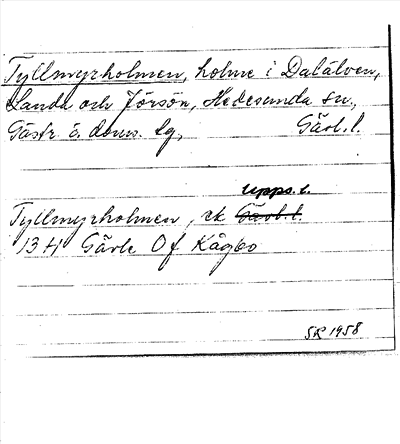 Tyllmyrholmen, holme i Dalälven,
Sanda och Jörsön, Hedesunda sn,
Gästr. ö. doms. tg, Gävl. l.
Upps. l.
Tyllmyrholmen, ek Gävl. l.
13 H Gävle Of Kågbo
SR 1958